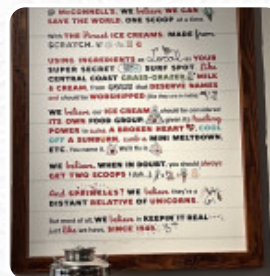 @ McCONNELL'S, WE believe WE CAN
SAVE THE WORLD, ONE SCOOP at a time.
With The Finest ICE CREAMS. MADE from
SCRATCH.
USING INGREDIENTS as as YOUR
SUPER SECRET SURF SPOT. Like
CENTRAL COAST GRASS-GRAZED MILK
& CREAM, from that DESERVE NAMES
and should be WORSHIPPED
WE believe our ICE CREAM should be considered
ITS OWN FOOD GROUP, given its healing
POWER to cure A BROKEN HEART, COOL
OFF A SUNBURN, curb a MINI MELTDOWN,
ETC. You name it.
WE believe, WHEN IN DOUBT, you should always
GET TWO SCOOPS
And SPRINKLES? WE believe they're a
DISTANT RELATIVE OF UNICORNS.
But most of all, WE believe in KEEPIN' IT REAL
Just like we have, SINCE 1949.